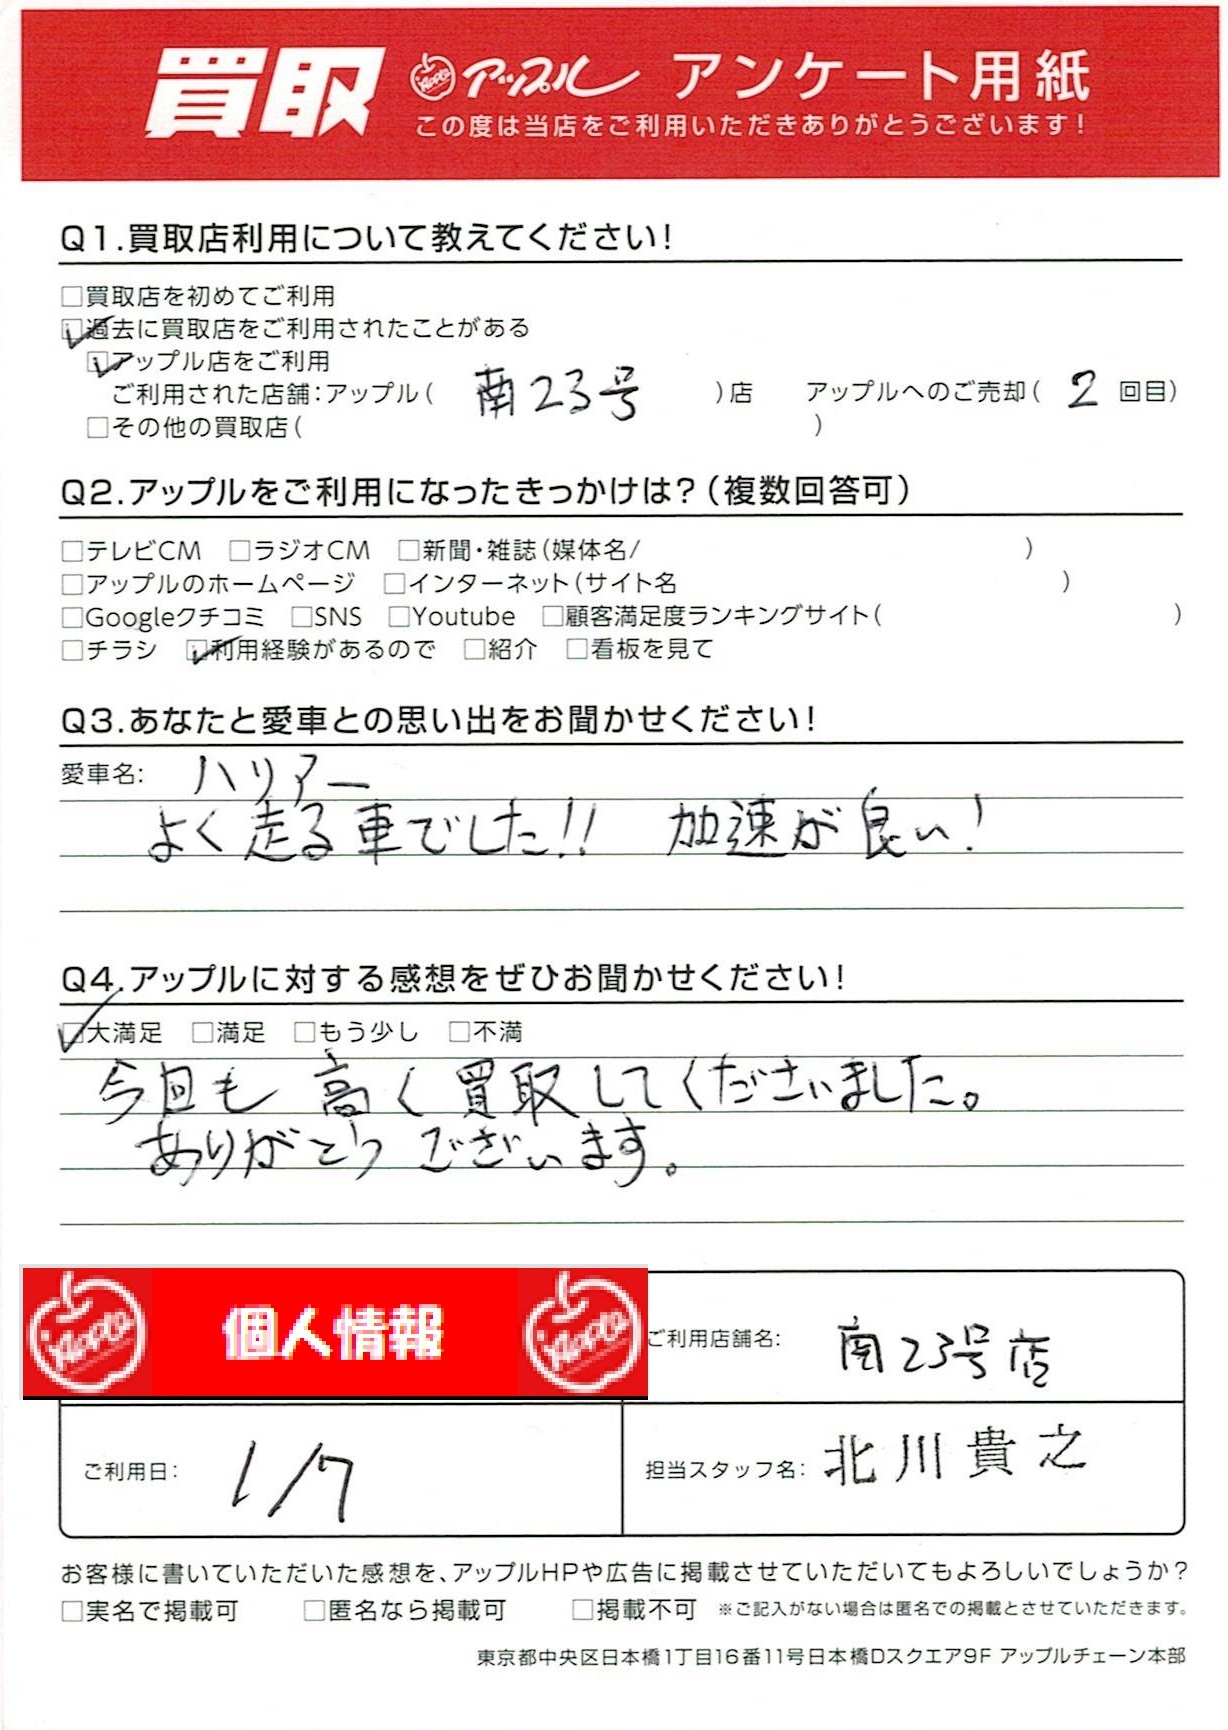 買取 Apple アップル アンケート用紙
この度は当店をご利用いただきありがとうございます！
Q1.買取店利用について教えてください！
□買取店を初めてご利用
☑過去に買取店をご利用されたことがある
☑アップル店をご利用
ご利用された店舗：アップル（ 南23号 ）店 アップルへのご売却（ 2 回目）
□その他の買取店（ ）
Q2.アップルをご利用になったきっかけは？（複数回答可）
□テレビCM □ラジオCM □新聞・雑誌（媒体名/ ）
□アップルのホームページ □インターネット（サイト名 ）
□Googleクチコミ □SNS □Youtube □顧客満足度ランキングサイト（ ）
□チラシ ☑利用経験があるので □紹介 □看板を見て
Q3.あなたと愛車との思い出をお聞かせください！
愛車名： ハリアー
よく走る車でした!! 加速が良い！
Q4.アップルに対する感想をぜひお聞かせください！
☑大満足 □満足 □もう少し □不満
今回も 高く買取してくださいました。
ありがとうございます。
Apple 個人情報 Apple ご利用店舗名： 南23号店
ご利用日： 1/7 担当スタッフ名： 北川貴之
お客様に書いていただいた感想を、アップルHPや広告に掲載させていただいてもよろしいでしょうか？
□実名で掲載可 □匿名なら掲載可 □掲載不可 ※ご記入がない場合は匿名での掲載とさせていただきます。
東京都中央区日本橋1丁目16番11号日本橋Dスクエア9F アップルチェーン本部